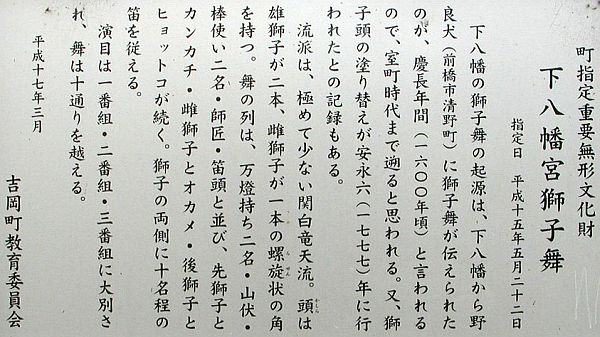 町指定重要無形文化財
下八幡宮獅子舞
指定日　平成十五年五月二十二日
下八幡の獅子舞の起源は、下八幡から野
良犬（前橋市清野町）に獅子舞が伝えられた
のが、慶長年間（一六〇〇年頃）と言われる
ので、室町時代まで遡ると思われる。又、獅
子頭の塗り替えが安永六（一七七七）年に行
われたとの記録もある。
流派は、極めて少ない関白竜天流。頭は
雄獅子が二本、雌獅子が一本の螺旋状の角
を持つ。舞の列は、万燈持ち二名・山伏・
棒使い二名・師匠・笛頭と並び、先獅子と
カンカチ・雌獅子とオカメ・後獅子と
ヒョットコが続く。獅子の両側に十名程の
笛を従える。
演目は一番組・二番組・三番組に大別さ
れ、舞は十通りを越える。
平成十七年三月
吉岡町教育委員会